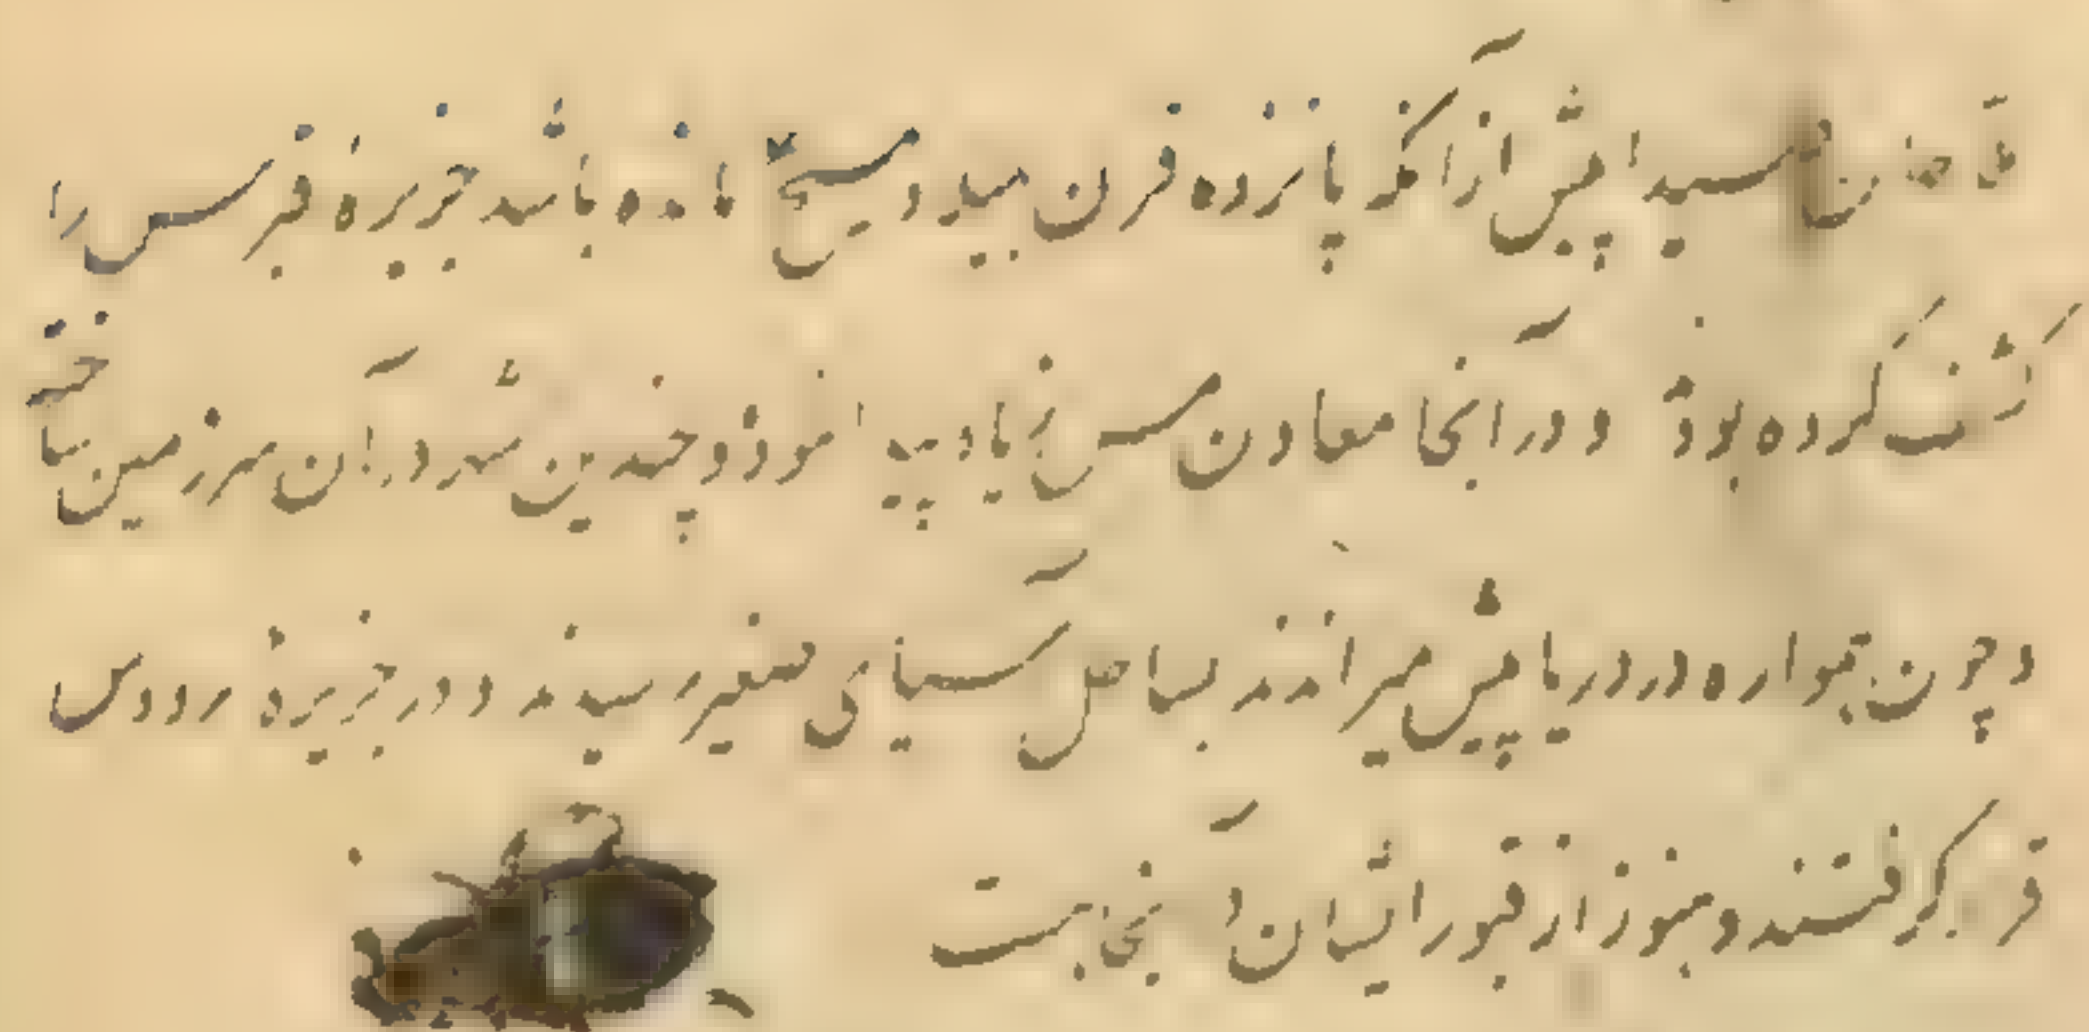 ملاحان سیدا پیش از آنکه پانزده قرن بمیلاد مسیح مانده باشد جزیره قبرس را
کشف کرده بود و در آنجا معادن مس زیاد پیدا نمود و چندین شهر در آن سرزمین ساخت
و چون همواره در دریا پیش میراندند بساحل آسیای صغیر رسیدند و در جزیره رودس
قرار گرفتند و هنوز از قبور ایشان در آنجا هست